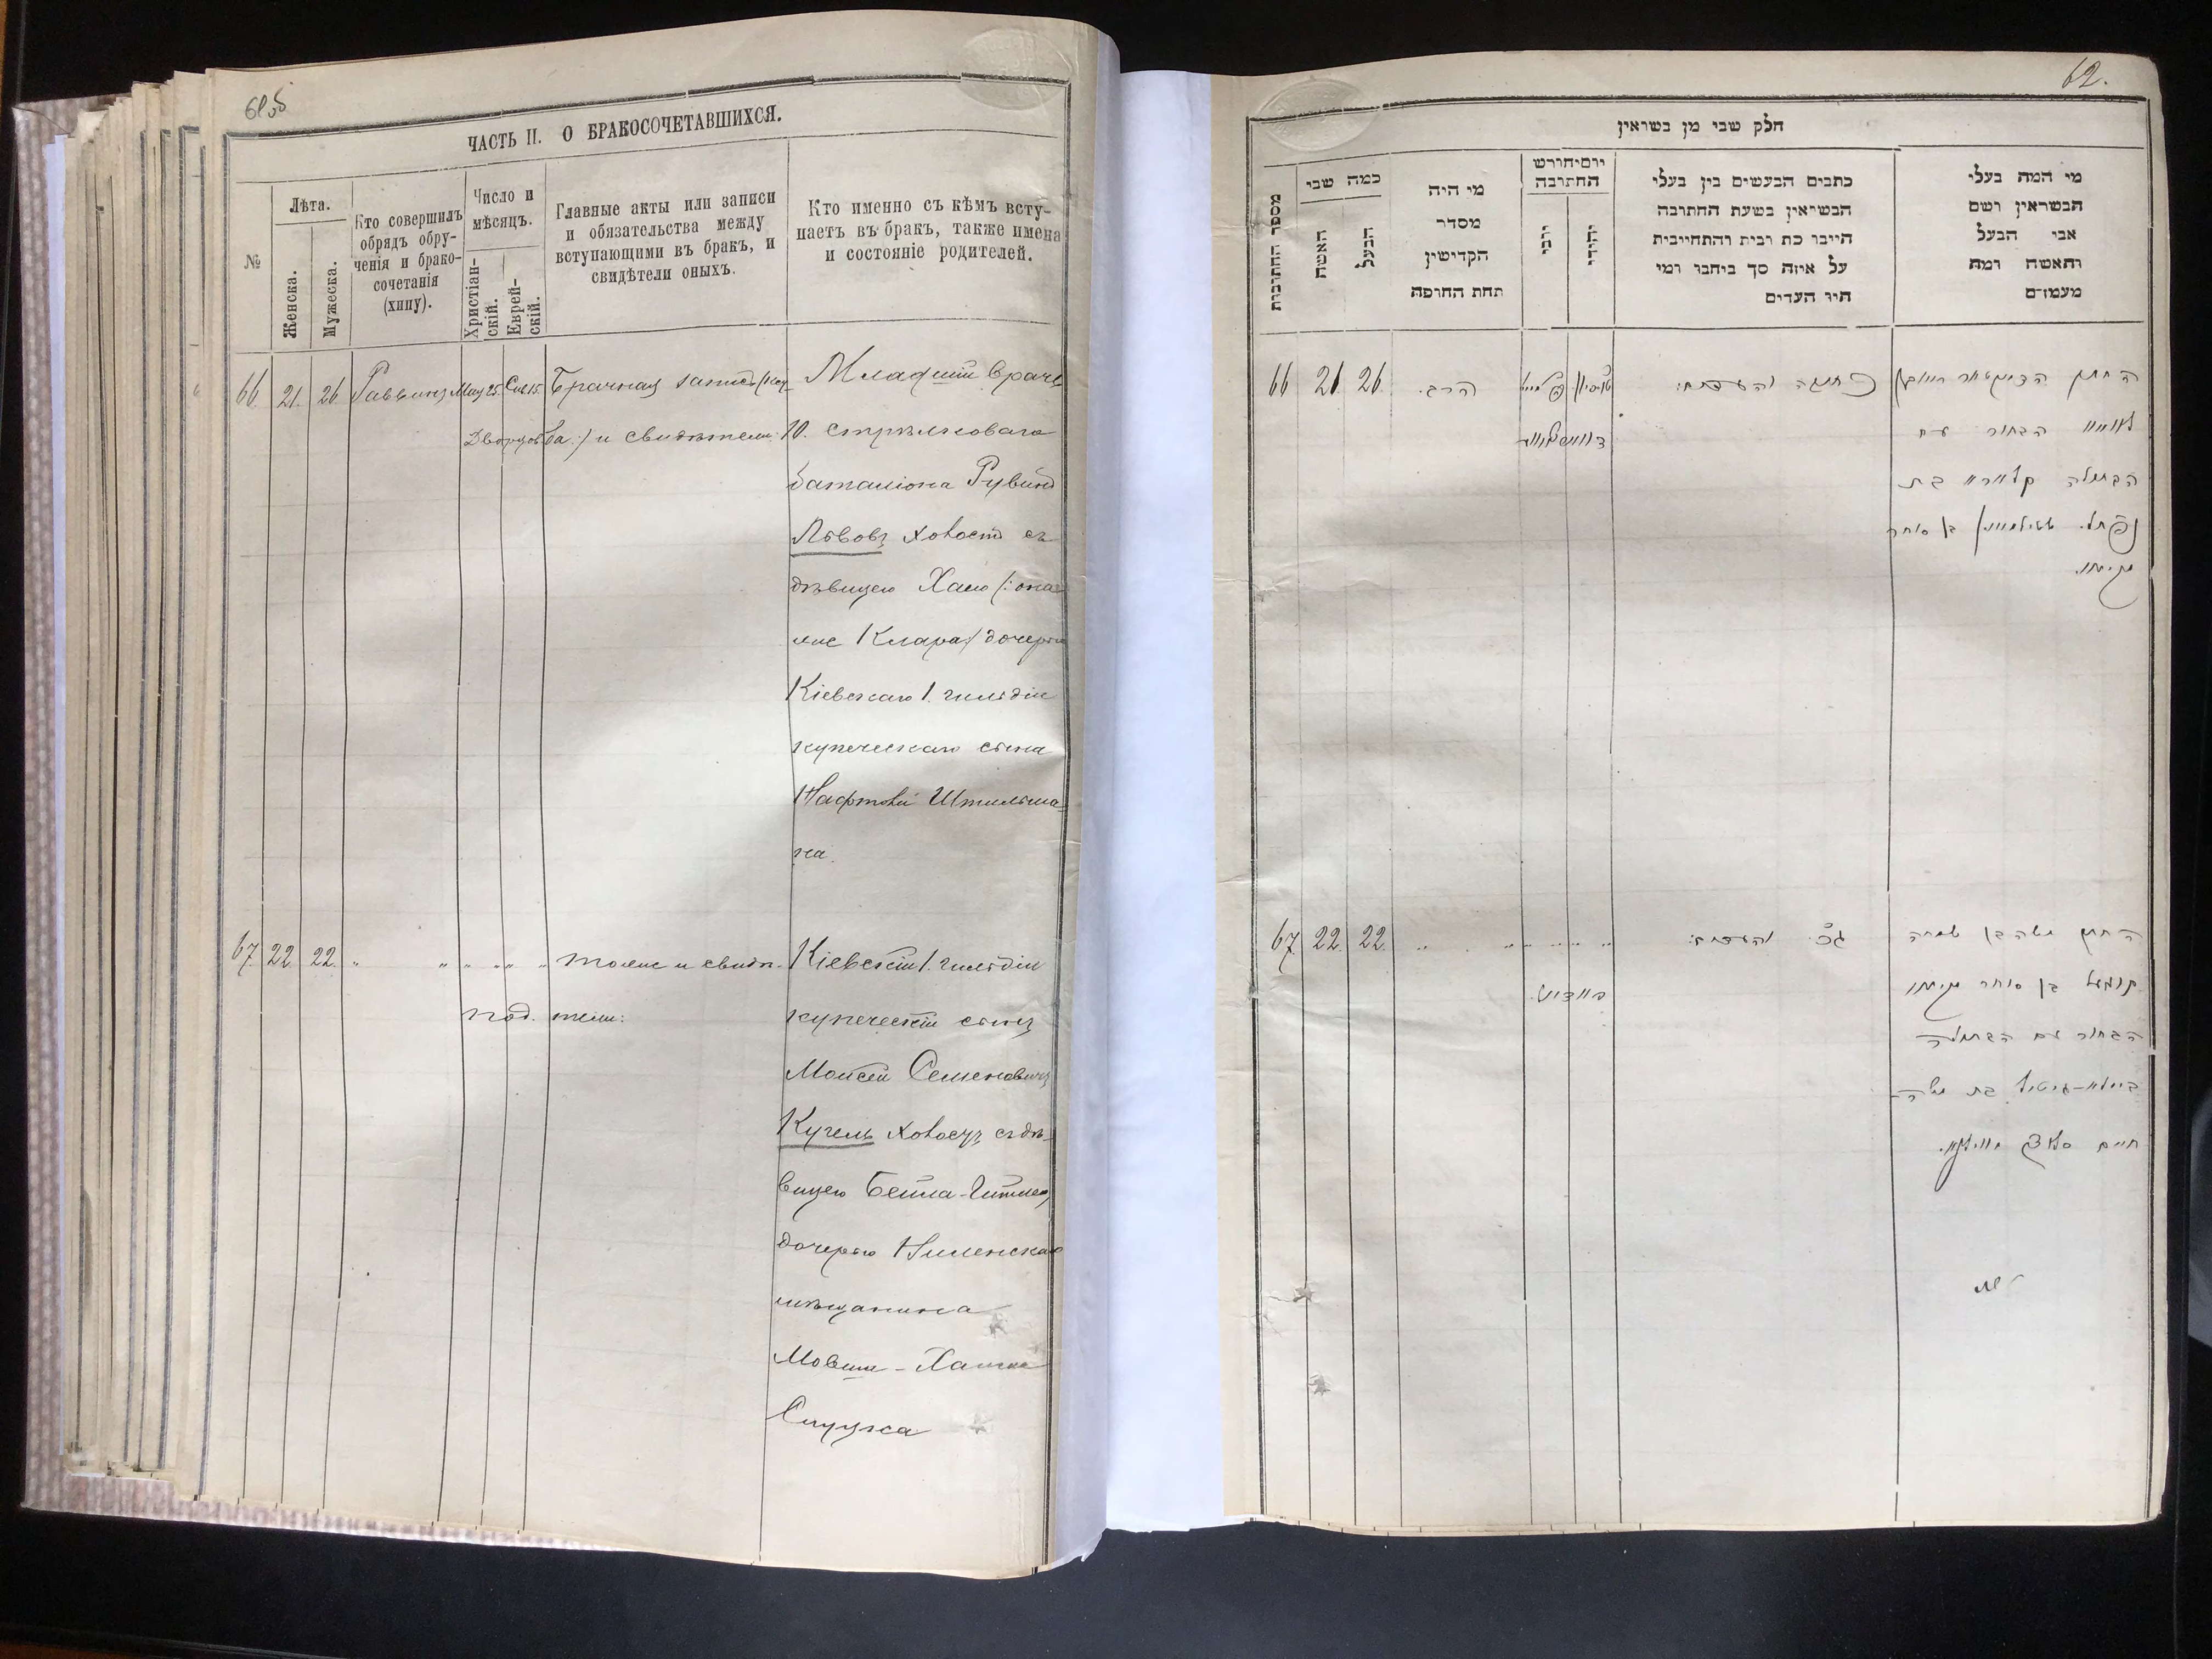 ЧАСТЬ II. О БРАКОСОЧЕТАВШИХСЯ.
№
Лѣта.
Женска.
Мужеска.
Кто совершилъ
обрядъ обру-
ченія и брако-
сочетанія
(хипу).
Число и
мѣсяцъ.
Христіан-
скій.
Еврей-
скій.
Главные акты или записи
и обязательства между
вступающими въ бракъ, и
свидѣтели оныхъ.
Кто именно съ кѣмъ всту-
паетъ въ бракъ, также имена
и состояніе родителей.
66. 21. 26. Раввинъ Мая 25. Сив. 15. Брачная запись
Младшій врачъ
и свидѣтели:
10. стрѣлковаго
баталіона Рувинъ
Львовъ холостъ съ
дѣвицею Хаею (: она
же Клара :) дочерью
Кіевскаго 1. гильдіи
купеческаго сына
Нафтолы Штильма-
на.
67. 22. 22. " " " " " " тоже и свидѣ-
тели:
Кіевскій 1. гильдіи
купеческій сынъ
Моисей Семеновичъ
Кугель холостъ съ дѣ-
вицею Бейла-Гитлею,
дочерью
мѣщанина
Мовши-Хаима
Слуцка
62.
חלק שני מן נשואין
מספר החתונות
כמה שני
האשה
הבעל
מי היה
מסדר
הקדישין
תחת החופה
יום וחורש
החתונה
יוני
יהודי
כתבים הנעשים בין בעלי
הנשואין בשעת החתונה
היינו כת ובית והתחייבות
על איזה סך ביחבו ומי
היו העדים
מי המה בעלי
הנשואין ושם
אבי הבעל
והאשה ומה
מעמדם
66 21. 26. הרב. כתובה והעדים:
החתן
הבחור עם
הבתולה קלארא בת
נפתלי שטילמאן בן סוחר
67. 22. 22. " " " " " והעדים:
החתן משה בן שמחה
קוגעל בן סוחר
הבחור עם הבתולה
ביילא-גיטיל בת משה
חיים סלוצק